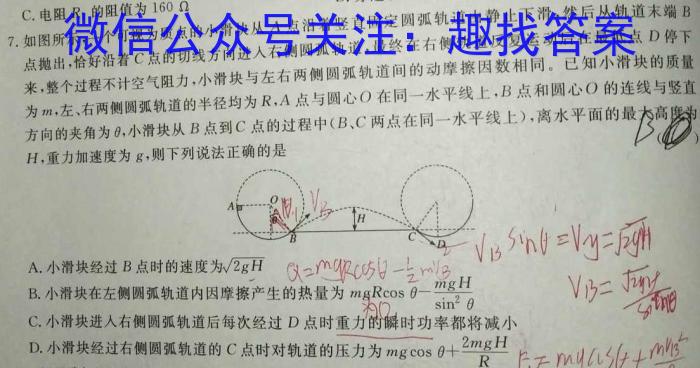 C.电阻R₁的阻值为160 Ω
微信公众号关注：趣找答案
7.如图所
滑块从
沿着竖直固定圆弧轨道
静止下滑,然后从轨道末端B
点抛出,恰好沿着C点的切线方向进入右侧圆弧轨道,最终在右侧
D点停下
来,整个过程不计空气阻力,小滑块与左右两侧圆弧轨道间的动摩擦因数相同。已知小滑块的质量
为m,左、右两侧圆弧轨道的半径均为R,A点与圆心O在同一水平线上,B点和圆心O的连线与竖直
方向的夹角为θ,小滑块从B点到C点的过程中(B、C两点在同一水平线上),离水平面的最大高度为
H,重力加速度为g,则下列说法正确的是
B
A O B H C D
V_B
V_B sinθ=V_y=√2gH
A.小滑块经过B点时的速度为√2gH
Q=mgRcosθ-½mV_B²
B.小滑块在左侧圆弧轨道内因摩擦产生的热量为mgRcos θ-mgH/sin² θ
V_B=√2gH/sinθ
为0
C.小滑块进入右侧圆弧轨道后每次经过D点时重力的瞬时功率都将减小
D.小滑块经过右侧圆弧轨道的C点时对轨道的压力为mgcos θ+2mgH/R